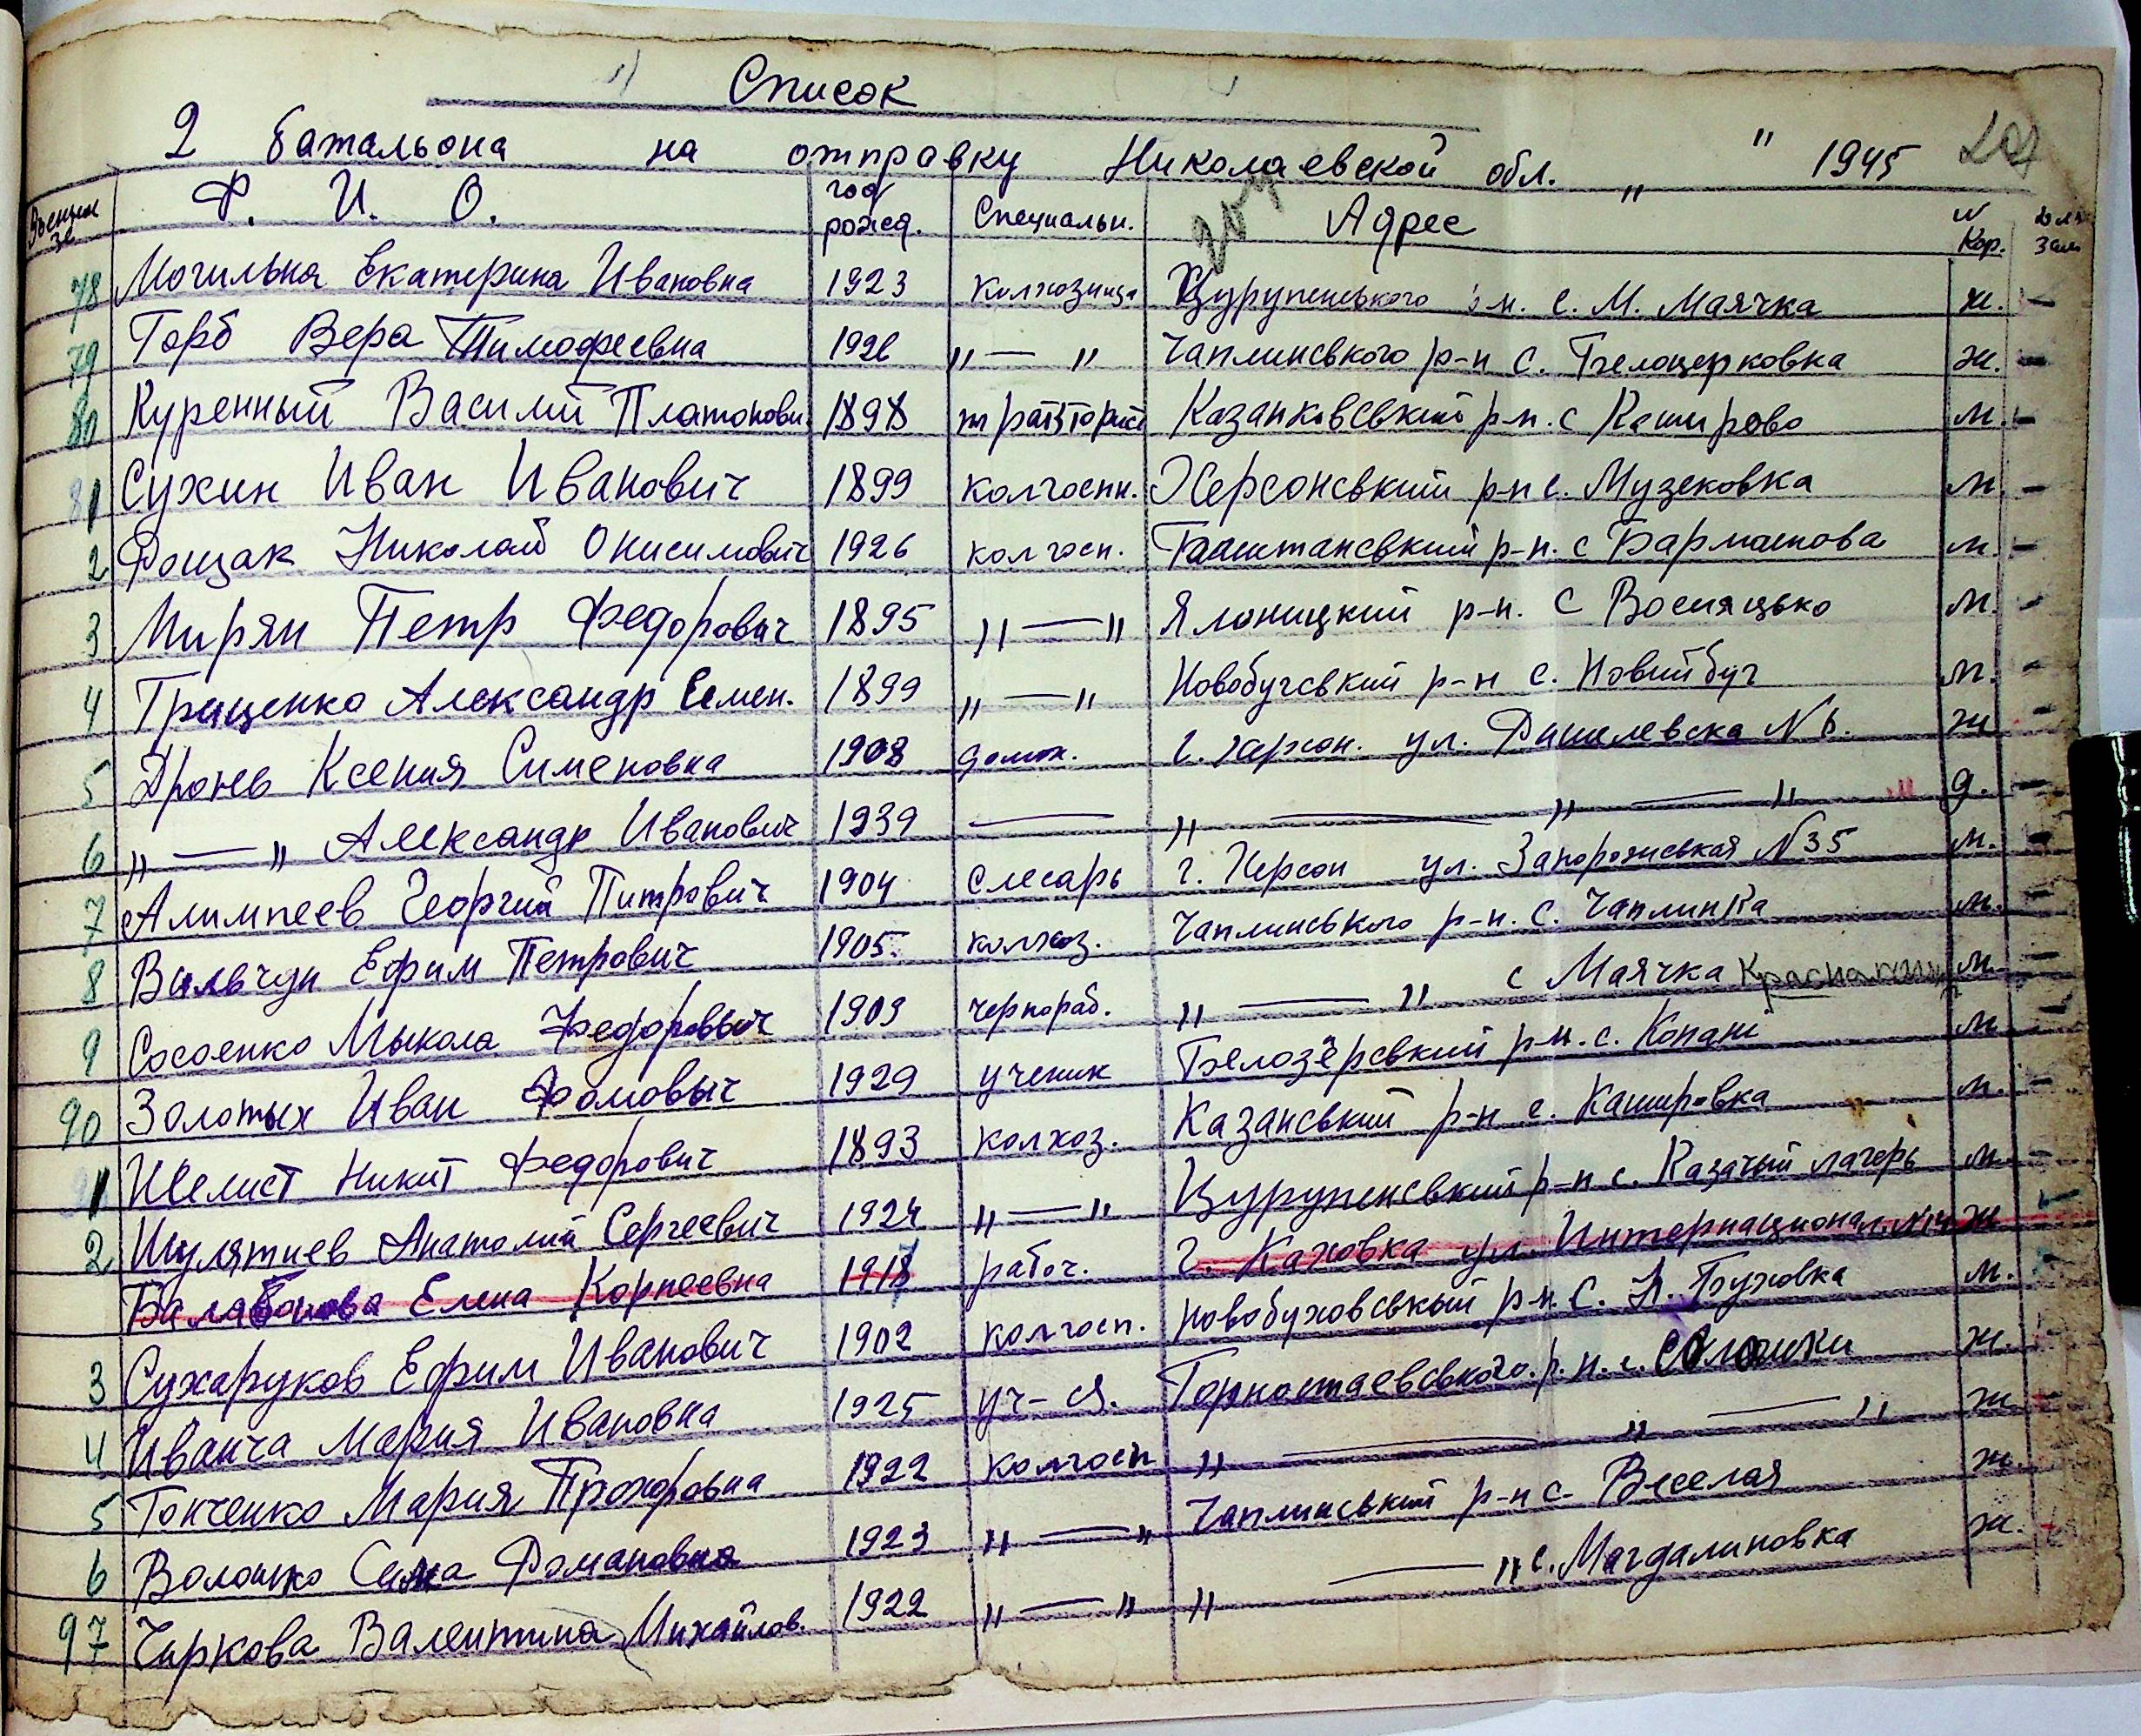 Список
2 батальона на отправку Николаевской обл. " " 1945
Ф. И. О. год рожд. Специальн. Адрес Кор.
78 Могильна Екатерина Ивановна 1923 колхозница Цурупенського с. М. Маячка ж. —
79 Горб Вера Тимофеевна 1926 " — " Чаплинсвкого р-н с. Белоцерковка ж. —
80 Куренный Василий Платонови 1898 Казанковсвкий р-н. с Каширово м. —
81 Сухин Иван Иванович 1899 колгоспн. Херсонсвкий р-н с. Музековка м. —
2 Рощак Николай Онисимович 1926 колгосп. Баштансвкий р-н. с Бармашова м. —
3 Мирян Петр Федорович 1895 " — " р-н. с м. —
4 Грищенко Александр Семен. 1899 " — " р-н с. м. —
5 Дронев Ксения Сименовна 1908 домох. г. Херсон. ул. ж —
6 " — " Александр Иванович 1939 — " — " — " д. —
7 Алимпеев Георгий Питрович 1904 слесарь г. Херсон ул. Запорожськая N 35 м. —
8 Вильчун Ефим Петрович 1905. колхоз. Чаплинського р-н. с. Чаплинка м. —
9 Сосоенко Мыкола Федоровыч 1909 чернораб. " — " с Маячка м —
90 Золотых Иван Фомовыч 1929 ученик Белозёрсвкий р-н. с. Копані м —
1 Швелист Никит Федорович 1893 колхоз. Казансвкий р-н с. Кашировка м. —
2 Шулятиев Анатолий Сергеевич 1924 " — " Цурупенсвкий р-н с. Казачый лагерь м —
Балабанова Елена Корнеевна рабоч. г. Каховка ул. Интернационал. N14 ж
3 Сухаруков Ефим Иванович 1902 колгосп. Новобуховсвкый р-н. с. Н. Буховка м.
4 Иванча Мария Ивановна 1925 уч-ся. Горностаевсвкого. р. н. с. ж.
5 Гонченко Мария Прохоровна 1922 колгосп " — " — " ж
6 Волошко Сима Романовна 1923 " — " Чаплинсвкий р-н с. Веселая ж.
97 Чиркова Валентина Михайлов. 1922 " — " " — " с. Магдалиновка ж.